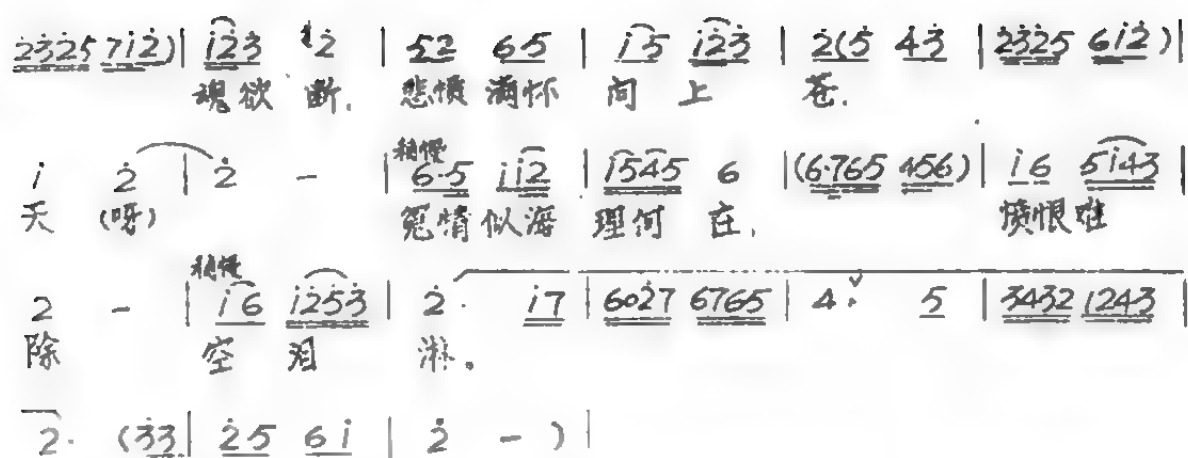 2̇3̇2̇5 7i2̇)| i2̇3̇ ⁱ2̇ | 52 65 | i5 i2̇3̇ | 2̇(5 43̇ | 2̇3̇2̇5 6i2̇)|
魂欲 断, 悲愤 满怀 问 上 苍.
i 2̇ | 2̇ - | 稍慢 6·5 ii2̇ | i545 6 |(6·765 456)| i6 5i43̇ |
天 (呀) 冤情似海 理何 在, 愤恨难
2 - | 稍慢 i6 i2̇53̇ | 2̇· i7 | 602̇7 6765 | 4· 5 | 3432 1243 |
除 空 泪 淋。
2· (3̇3̇| 2̇5 6i | 2̇ - )|